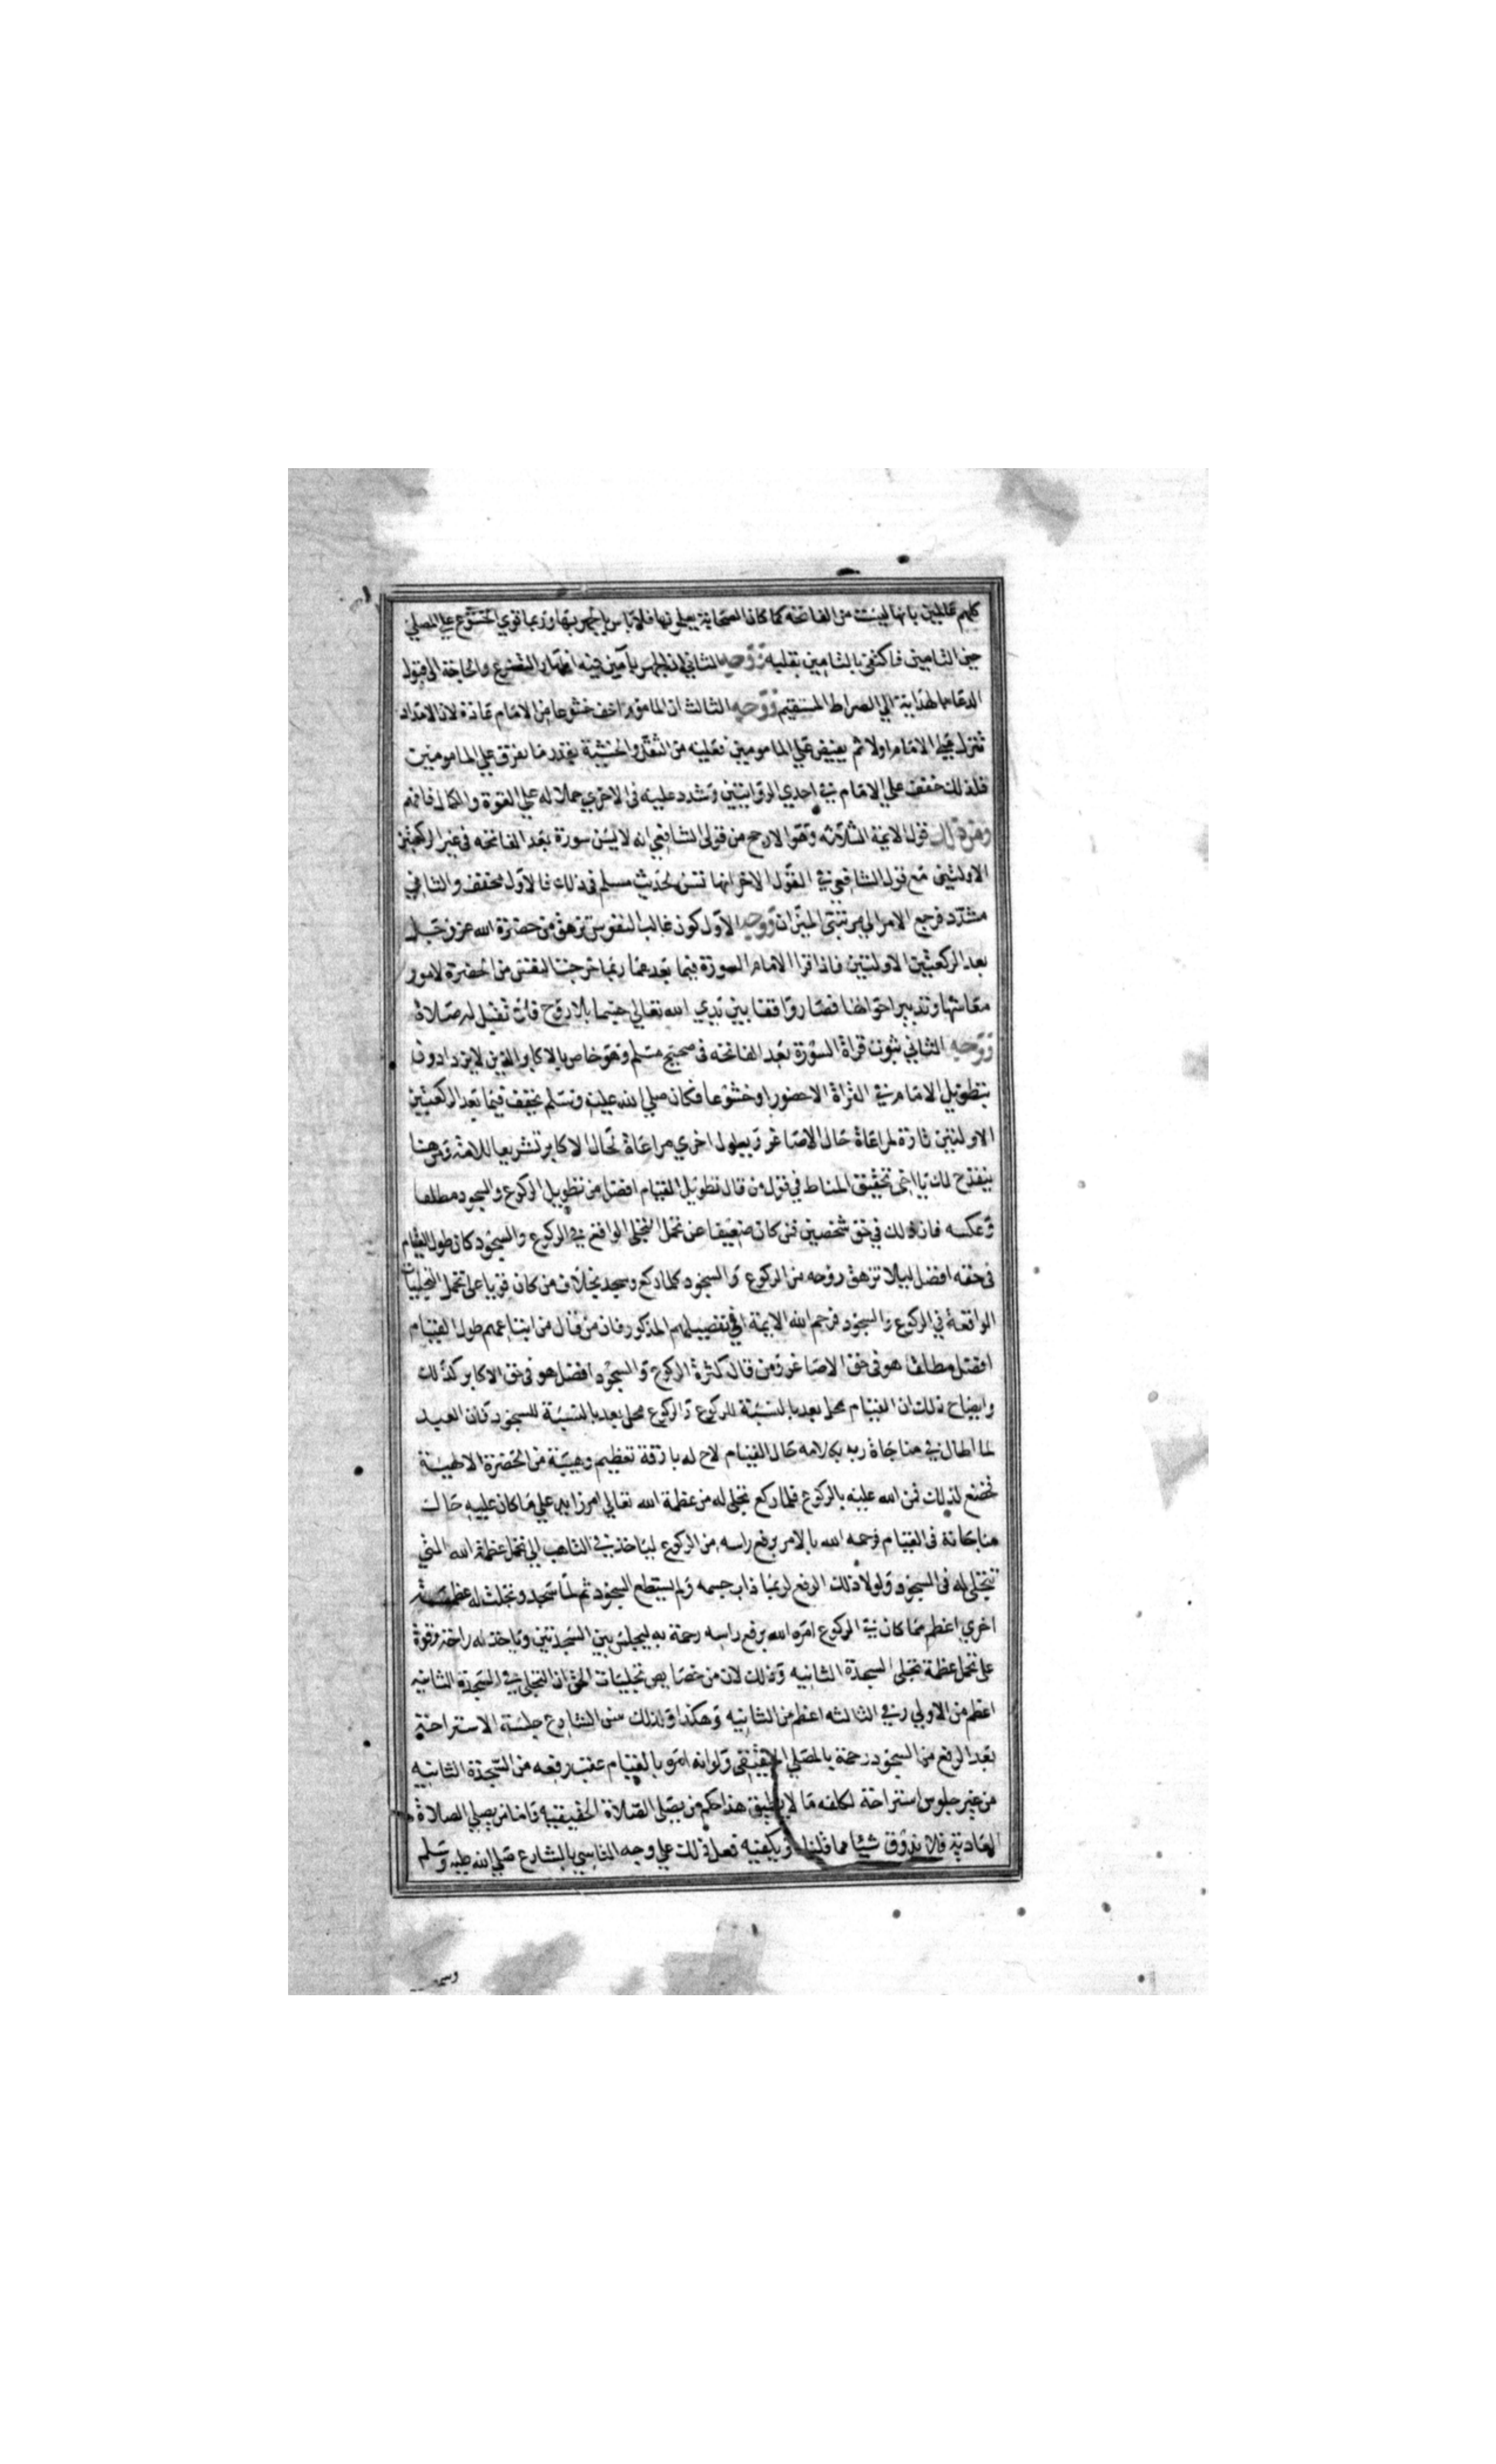 كلهم عالمين بانها ليست من الفاتحه كما كان الصحابة يعلمونها فلا باس بالجهر بها وربما قوي الخشوع على المصلي
حين التامين فاكتفي بالتامين بقلبه ووجه الثاني ان الجهر بآمين فيه اظهار التضرع والحاجة الى قبول
الدعاء بالهداية الي الصراط المستقيم ووجه الثالث ان الماموم اخف خشوعا من الامام عادة لان الامداد
تنزل على الامام اولا ثم يفيض علي المامومين فعليه من الثقل والخشية بقدر ما يفرق علي المامومين
فلذلك خفف علي الامام في احدي الروايتين وشدد عليه في الاخري حملا له علي القوة والكمال فافهم
ومن ذلك قول الايمة الثلاثه وهو الارجح من قولى الشافعي انه لا يسن سورة بعد الفاتحه في غير الركعتين
الاولتين مع قول الشافعي في القول الاخر انها تسن لحديث مسلم في ذلك فالاول مخفف والثاني
مشدد فرجع الامر الي مرتبتى الميزان ووجه الاول كون غالب النفوس تزهق من حضرة الله عز وجل
بعد الركعتين الاولتين فاذا قرا الامام السورة فيما بعدهما ربما خرجت النفس من الحضرة لامور
معاشها وتدبير احوالها فصار واقفا بين يدي الله تعالي جسما بلا روح فلا تقبل له صلاة
ووجه الثاني ثبوت قراة السورة بعد الفاتحه في صحيح مسلم وهو خاص بالاكابر الذين لا يزدادون
بتطويل الامام في القراة الا حضورا وخشوعا فكان صلي الله عليه وسلم يخفف فيما بعد الركعتين
الاولتين تارة لمراعاة حال الاصاغر ويطول اخري مراعاة لحال الاكابر تشريعا للامة ومن هنا
ينقدح لك يا اخي تحقيق المناط في قول من قال تطويل القيام افضل من تطويل الركوع والسجود مطلقا
وعكسه فان ذلك في حق شخصين فمن كان ضعيفا عن تحمل التجلي الواقع في الركوع والسجود كان طول القيام
في حقه افضل ليلا تزهق روحه من الركوع والسجود كلما ركع وسجد بخلاف من كان قويا على تحمل التجليات
الواقعة في الركوع والسجود فرحم الله الايمة في تفصيلهم المذكور فان من قال من اتباعهم طول القيام
افضل مطلقا هو في حق الاصاغر ومن قال كثرة الركوع والسجود افضل هو في حق الاكابر كذلك
وايضاح ذلك ان القيام محل بعد بالنسبة للركوع والركوع محل بعد بالنسبة للسجود فان العبد
لما اطال في مناجاة ربه بكلامه حال القيام لاح له بارقة تعظيم وهيبة من الحضرة الالهية
فخضع لذلك فمن الله عليه بالركوع فلما ركع تجلى له من عظمة الله تعالي امر زايد علي ما كان عليه حالت
مناجاته في القيام فرحمه الله بالامر برفع راسه من الركوع لياخذ في التاهب الي تحمل عظمة الله التي
تتجلى له في السجود ولولا ذلك الرفع لربما ذاب جسمه ولم يستطع السجود ثم لما سجد وتجلت له عظمة
اخري اعظم مما كان في الركوع امره الله برفع راسه رحمة به ليجلس بين السجدتين وياخذ له راحة وقوة
على تحمل عظمة تجلى السجدة الثانيه وذلك لان من خصايص تجليات الحق ان التجلي في السجدة الثانيه
اعظم من الاولي وفي الثالثه اعظم من الثانيه وهكذا ولذلك سن الشارع جلسة الاستراحة
بعد الرفع من السجود رحمة بالمصلي الحقيقي ولو انه امره بالقيام عقب رفعه من السجدة الثانيه
من غير جلوس استراحة لكلفه ما لا يطيق هذا حكم من يصلي الصلاة الحقيقيه واما من يصلي الصلاة
العادية فلا يذوق شيئا مما قلناه ويكفيه فعل ذلك علي وجه التاسي بالشارع صلي الله عليه وسلم